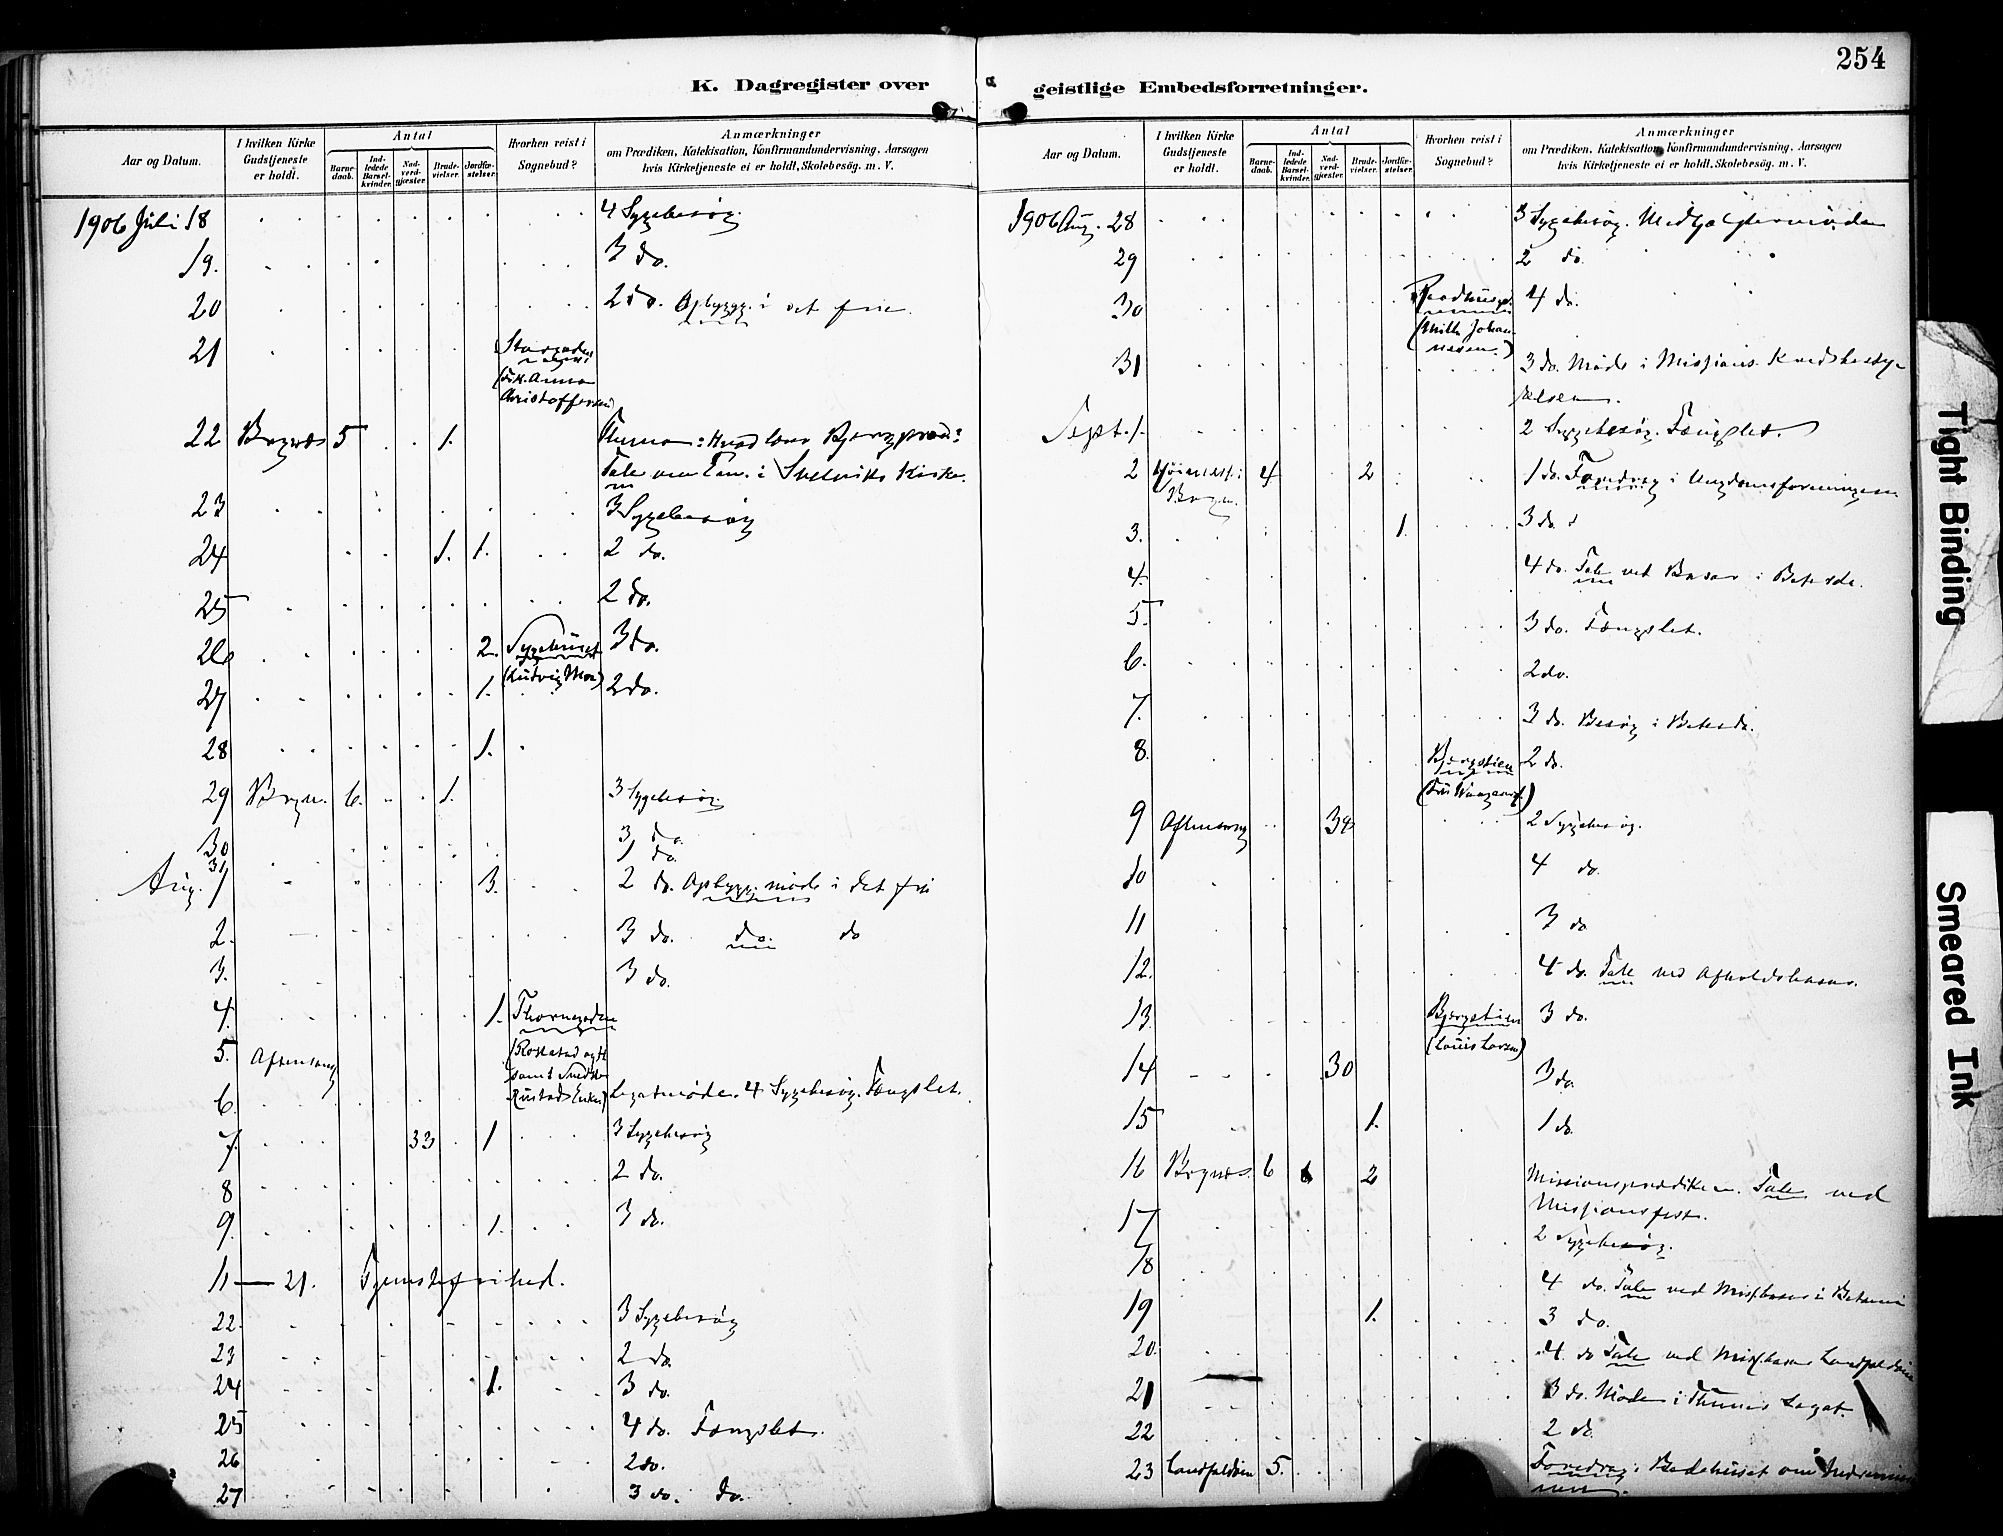 254
K. Dagregister over
geistlige Embedsforretninger.
Aar og Datum.
I hvilken Kirke Gudstjeneste er holdt.
Antal
Barne-daab.
Ind-ledede Barsel-kvinder.
Nad-verd-gjæster.
Brude-vielser.
Jordfæ-stelser.
Hvorhen reist i Sognebud?
Anmærkninger
om Prædiken, Katekisation, Konfirmandundervisning. Aarsagen
hvis Kirketjeneste ei er holdt, Skolebesög. m. V.
1906 Juli 18 4 Sygebesøg.
19. 3 do.
20 2 do. Opbygg. i det frie.
21
Christoffersen)
22 Bragnæs 5 1.
Tale om Em. i Kirke.
23 3 Sygebesøg
24 1. 1. 2 do.
25 2 do.
26 2. Sygehuset 3 do.
(Ludvig Moe)
27 1. 2 do.
28 1.
29 Bragn. 6. 1. 3 Sygebesøg
30 3 do.
31 1 do.
Aug. 1 3. 2 do. Opbygg. møde i det fri
2. 3 do. do. do
3. 3 do.
4. 1. Thornegaden
5. Aftensang
6. Legatmøde. 4 Sygebesøg. Fængslet.
7. 33 1 3 Sygebesøg
8 2 do.
9. 1. 3 do.
11 — 21. Tjenstefrihed.
22. 3 Sygebesøg
23 2 do.
24 1. 3 do.
25 4 do. Fængslet.
26 2 do.
27 3 do. do.
Aar og Datum.
I hvilken Kirke Gudstjeneste er holdt.
Antal
Barne-daab.
Ind-ledede Barsel-kvinder.
Nad-verd-gjæster.
Brude-vielser.
Jordfæ-stelser.
Hvorhen reist i Sognebud?
Anmærkninger
om Prædiken, Katekisation, Konfirmandundervisning. Aarsagen
hvis Kirketjeneste ei er holdt, Skolebesög. m. V.
1906 Aug. 28 3 Sygebesøg.
29 2 do.
30 4 do.
31 3 do. Møde i Missions
Sept. 1. 2 Sygebesøg. Fængslet.
2 4 2 1 do. Foredrag i Ungdomsforeningen
Bragn.
3. 1. 3 do.
4. 4 do. Tale ved Basar i Betesda.
5. 3 do. Fængslet.
6. 2 do.
7. 3 do. Besøg i Betesda.
8. Bjergstien 2 do.
9 Aftensang 34 2 Sygebesøg.
10 4 do.
11 3 do
12. 4 do. Tale ved Afholdsbasar.
13. Bjergstien 3 do.
(Louis Larsen)
14 30 3 do.
15 1. 1 do.
16 Bragnæs. 6 2 Missionsprædiken. Tale ved
17 Missionsfest.
2 Sygebesøg.
18 4 do. Tale ved Miss.basar i Betania
19 1. 3 do.
20. 4 do Tale ved Miss.basar Landfaldøen
21 3 do. Møde i Thunes Legat.
22 2 do.
23 Landfaldøen 5. Foredrag i Bedehuset om
Tight Binding
Smeared Ink